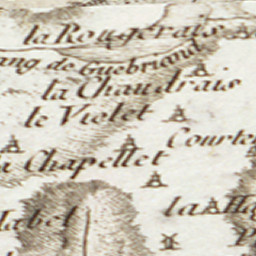 la Rougerais
ang de Guebriand
la Chaudrais
le Violet
Courte
a Chapellet
la Ha